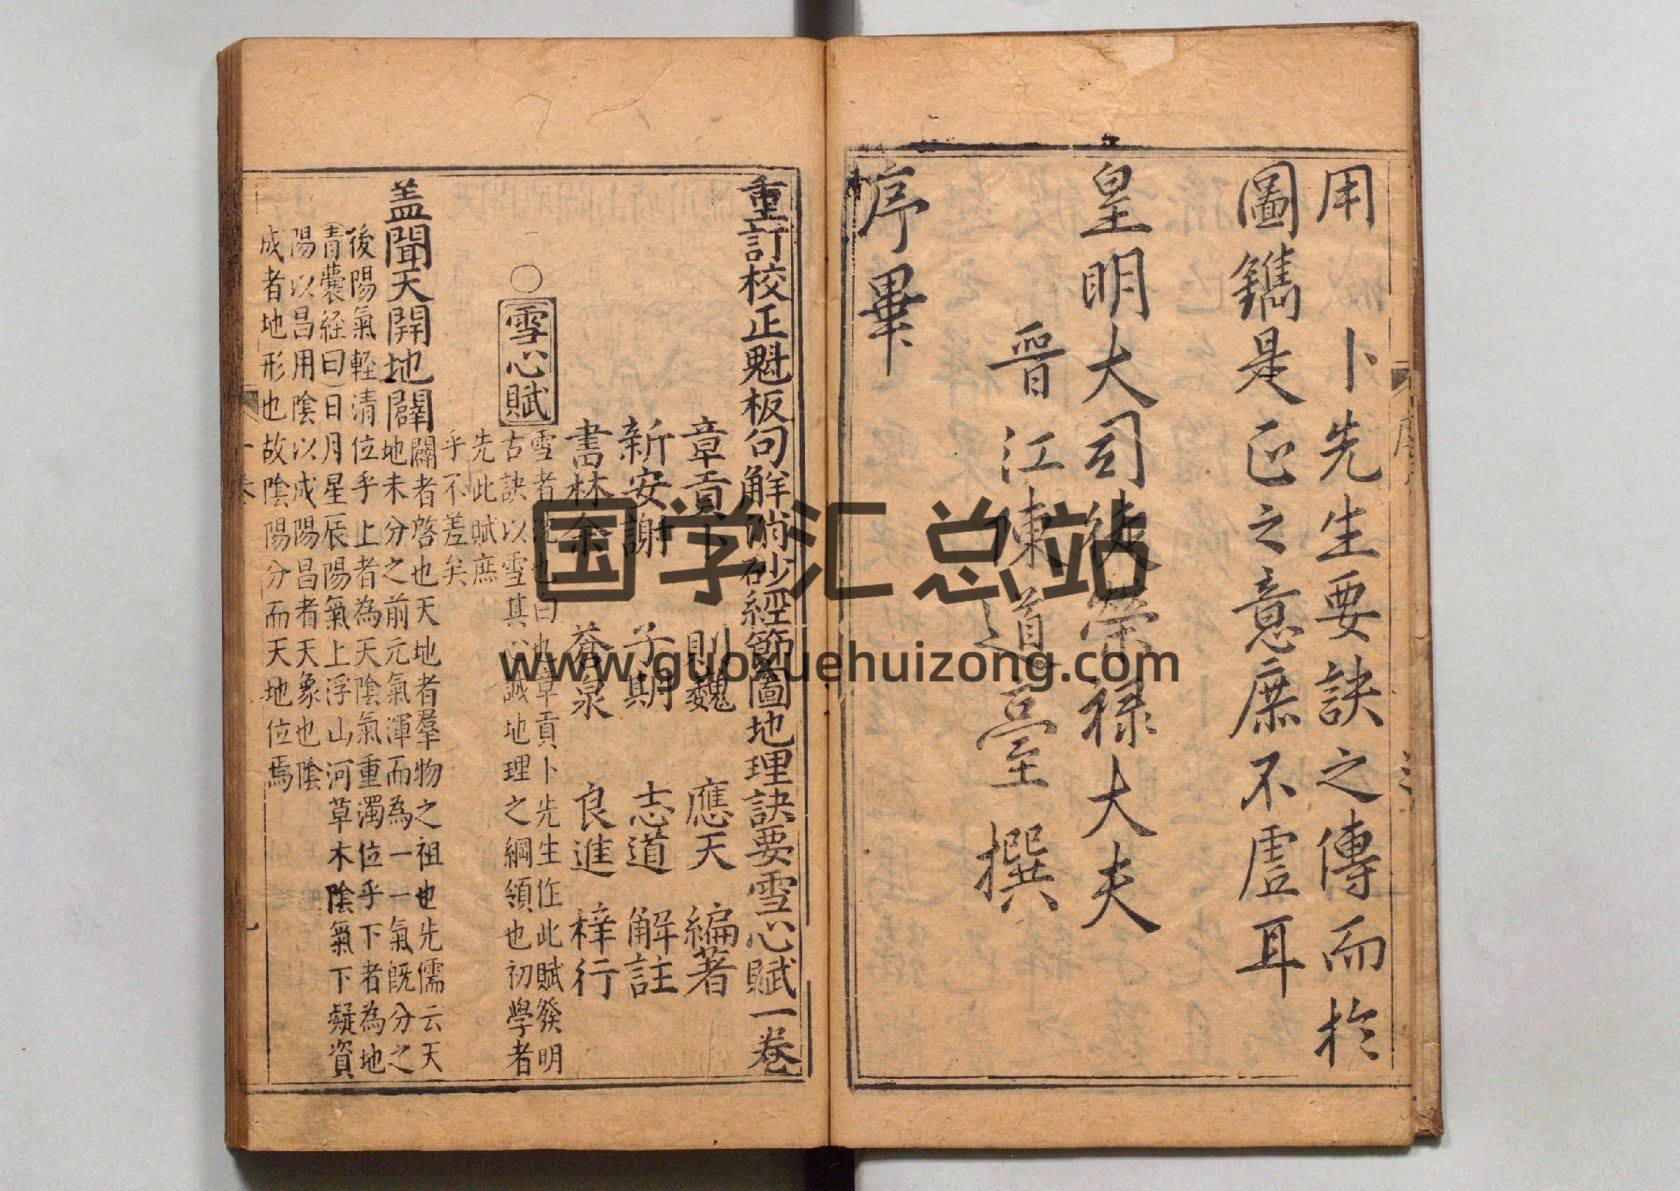 用卜先生要訣之傳而於
圖鐫是正之意庶不虛耳
皇明大司徒榮禄大夫
晉江陳道亨撰
序畢
重訂校正魁板句解消砂經節圖地理訣要雪心賦一卷
章貢卜則魏應天編著
新安謝子期志道解註
書林余蒼泉良進梓行
○雪心賦
雪者洗也曰也章貢卜先生作此賦發明
古訣以雪其心誠地理之綱領也初學者
先此賦庶
乎不差矣
盖聞天開地闢
闢者啓也天地者羣物之祖也先儒云天
地未分之前元氣渾而為一一氣既分之
後陽氣輕清位乎上者為天陰氣重濁位乎下者為地
青囊経曰日月星辰陽氣上浮山河草木陰氣下凝資
陽以昌用陰以成陽昌者天象也陰
成者地形也故陰陽分而天地位焉
一卷
国学汇总站
www.guoxuehuizong.com